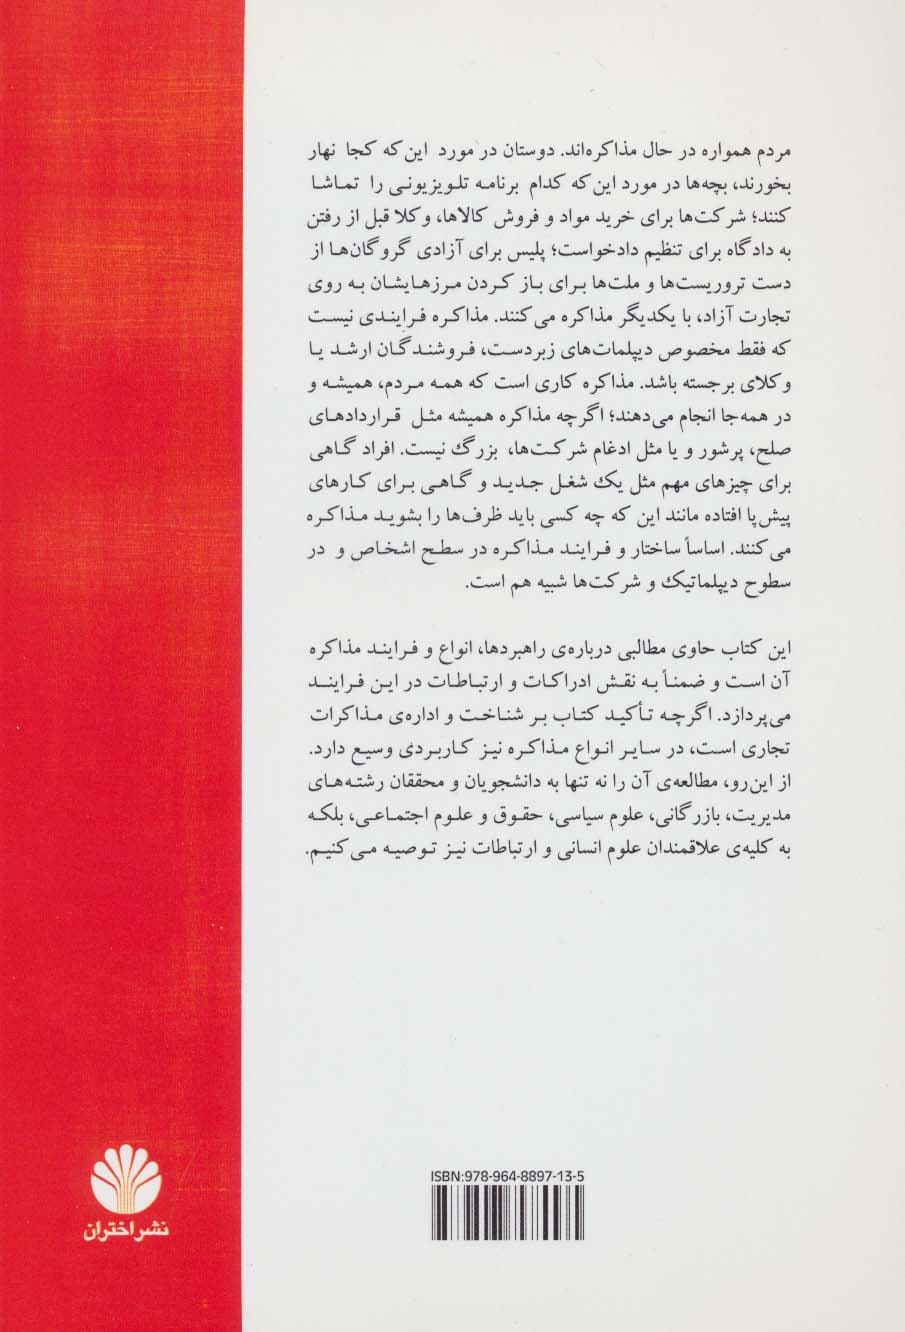 مردم همواره در حال مذاکره‌اند. دوستان در مورد این‌که کجا نهار
بخورند، بچه‌ها در مورد این‌که کدام برنامه تلویزیونی را تماشا
کنند؛ شرکت‌ها برای خرید مواد و فروش کالاها، وکلا قبل از رفتن
به دادگاه برای تنظیم دادخواست؛ پلیس برای آزادی گروگان‌ها از
دست تروریست‌ها و ملت‌ها برای باز کردن مرزهایشان به روی
تجارت آزاد، با یکدیگر مذاکره می‌کنند. مذاکره فرایندی نیست
که فقط مخصوص دیپلمات‌های زبردست، فروشندگان ارشد یا
وکلای برجسته باشد. مذاکره کاری است که همه مردم، همیشه و
در همه‌جا انجام می‌دهند؛ اگرچه مذاکره همیشه مثل قراردادهای
صلح، پرشور و یا مثل ادغام شرکت‌ها، بزرگ نیست. افراد گاهی
برای چیزهای مهم مثل یک شغل جدید و گاهی برای کارهای
پیش‌پا افتاده مانند این که چه کسی باید ظرف‌ها را بشوید مذاکره
می‌کنند. اساساً ساختار و فرایند مذاکره در سطح اشخاص و در
سطوح دیپلماتیک و شرکت‌ها شبیه هم است.
این کتاب حاوی مطالبی درباره‌ی راهبردها، انواع و فرایند مذاکره
آن است و ضمناً به نقش ادراکات و ارتباطات در این فرایند
می‌پردازد. اگرچه تأکید کتاب بر شناخت و اداره‌ی مذاکرات
تجاری است، در سایر انواع مذاکره نیز کاربردی وسیع دارد.
از این‌رو، مطالعه‌ی آن را نه تنها به دانشجویان و محققان رشته‌های
مدیریت، بازرگانی، علوم سیاسی، حقوق و علوم اجتماعی، بلکه
به کلیه‌ی علاقمندان علوم انسانی و ارتباطات نیز توصیه می‌کنیم.
ISBN:978-964-8897-13-5
نشر اختران